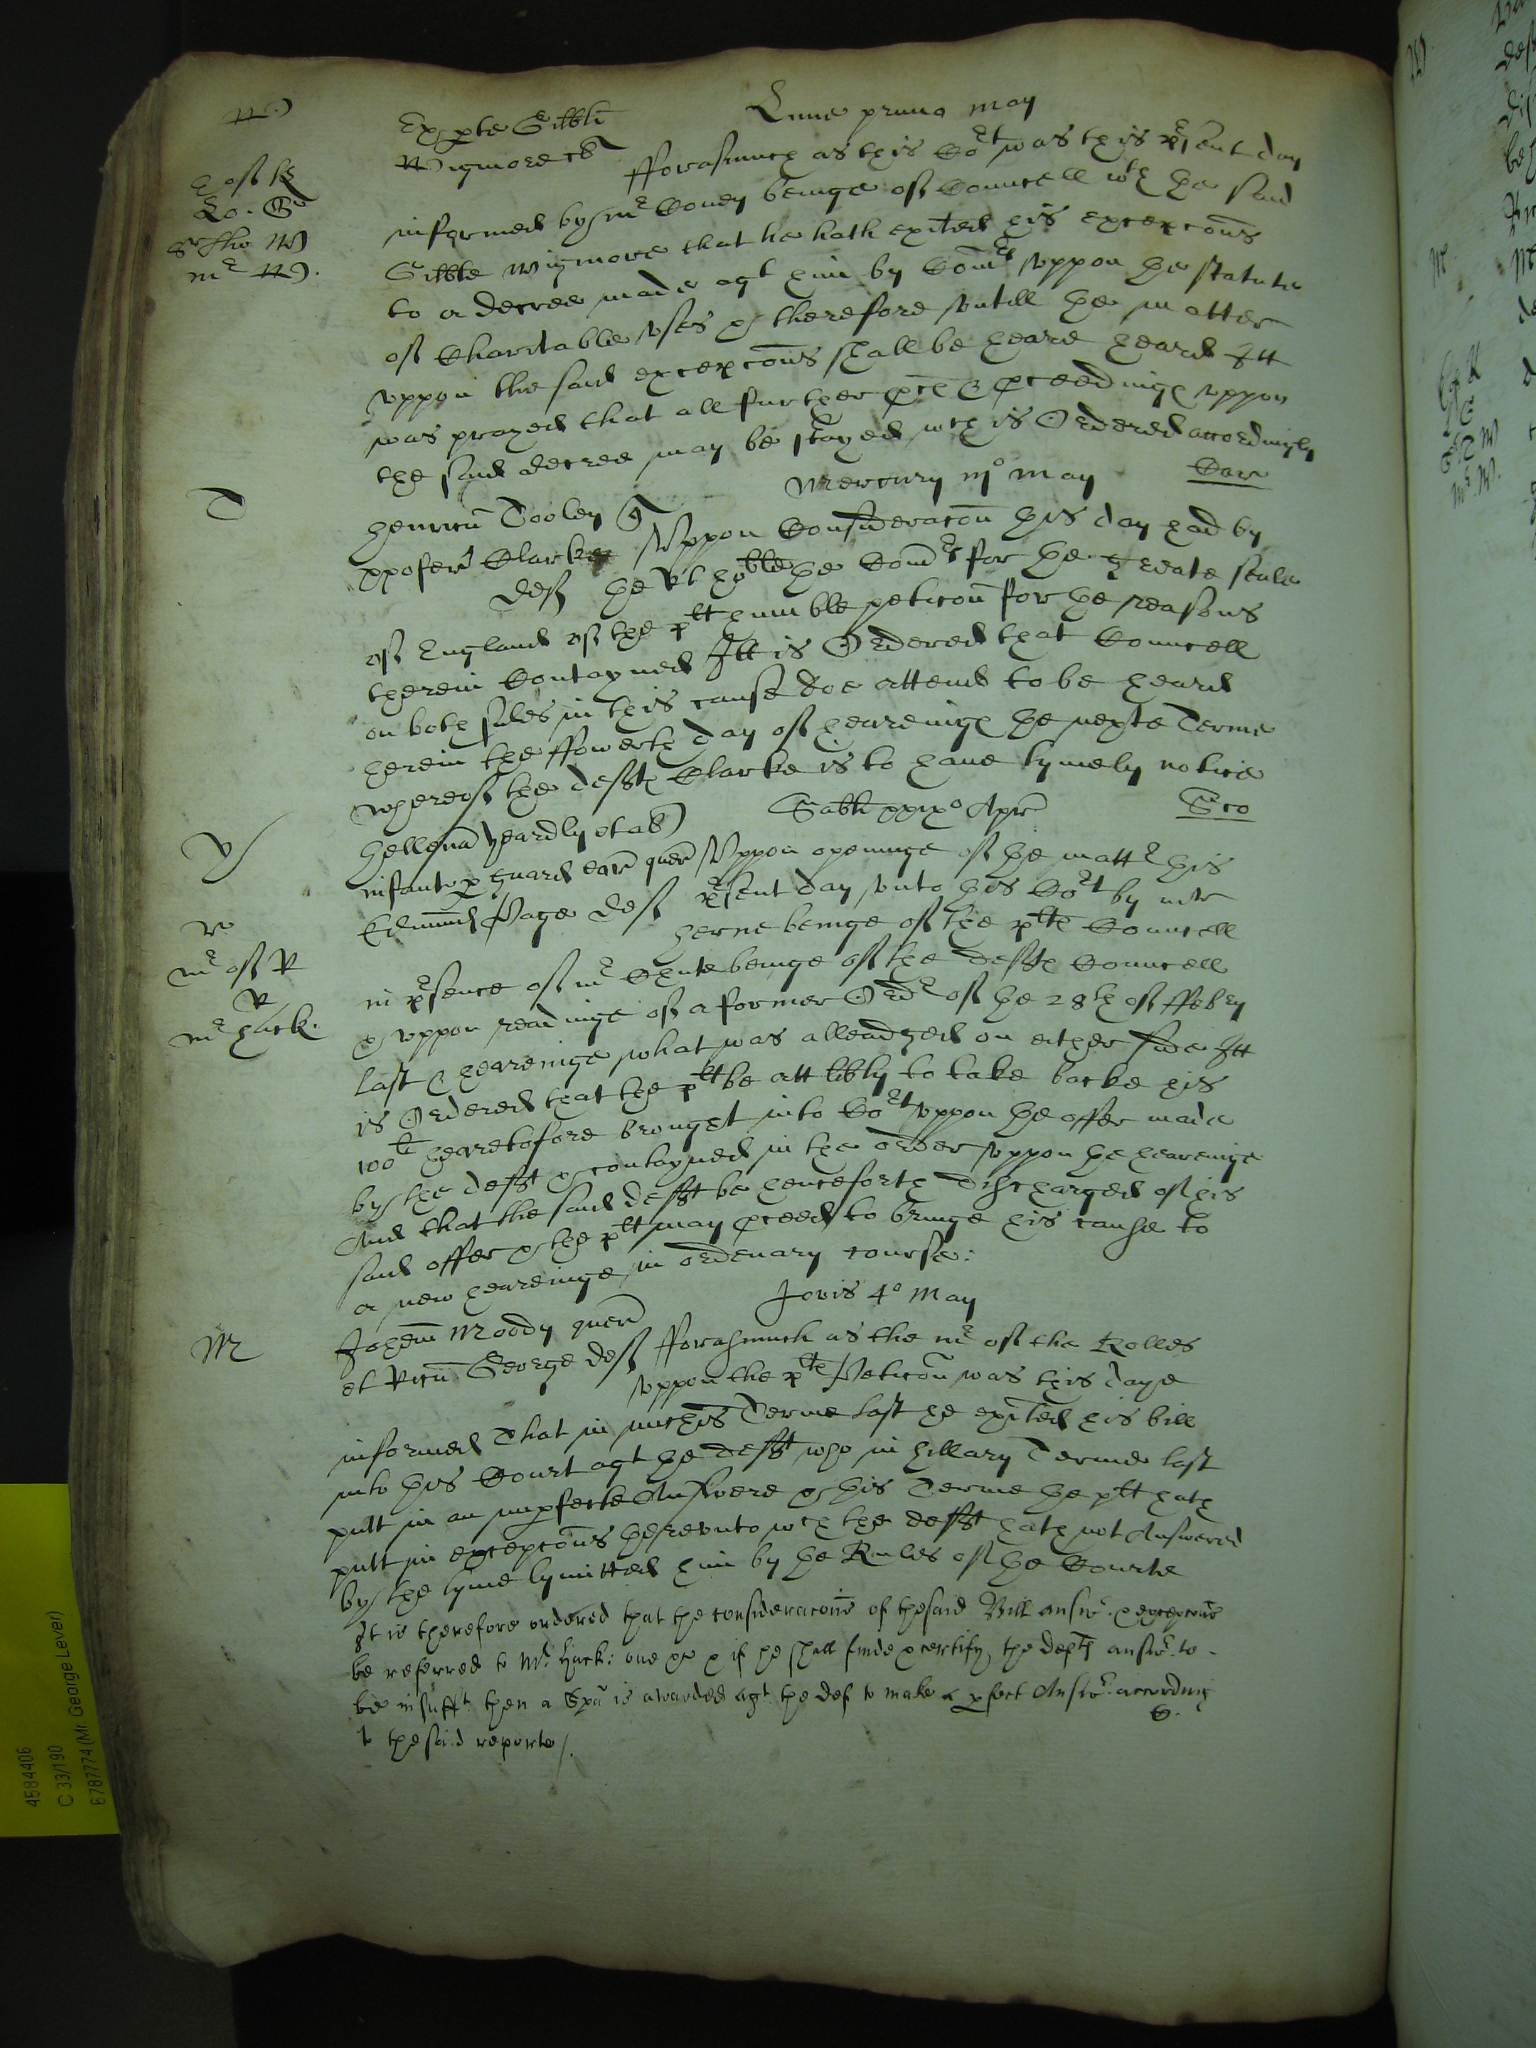 W
Ex parte Gibbt
Lune primo May
Wigmore
fforasmuch as this Cot was this prsent day
E of K
Lo. Gr
Sr Tho W
mr W.
informed by mr Coney beinge of Councell wth the said
Gibbt Wigmore that he hath exited his excepcons
to a decree made agt him by Comrs vppon the statute
of Charitable vses & therefore vntill the matter
vppon the said excepcons shall be heare heard Itt
was prayed that all further & pceedinge vppon
the said decree may be stayed wch is Ordered accordingly
T
Mercury iijo May
Car
Henricu Tooley
Xpofer Clarke
Vppon Consideracon this day had by
Deft the Rt hoble the Comrs for the greate seale
of England of the pltt humble peticon for the reasons
therein Contayned Itt is Ordered that Councell
on both sides in this cause doe attend to be heard
herein the ffowerth day of heareinge the nexte Terme
whereof the defft Clarke is to haue tymely notice
Y
Sabti xxixo Apr
Hellena Yeardly et al
infant p guard ear quer Vppon openinge of the mattr this
Edmund Page Deft prsent day vnto this Cot by mr
mr of R
R
mr Hack.
Herne beinge of the pltt Councell
in prsence of mr Chute beinge of the defft Councell
& vppon readinge of a former Ordr of the 28th of ffebry
last & heareinge what was alleadged on either side Itt
is Ordered that the pltt be att libty to take backe his
100l heretofore brought into Cot vppon the offer made
by the defft & contayned in the order vppon the heareinge
And that the said defft be henceforth discharged of his
said offer & the pltt may pceed to bringe his cause to
a new heareinge in ordenary course:
M
Jovis 4o May
Johem Moody quer
et Ricu George Deft
fforasmuch as the mr of the Rolles
vppon the pltt Peticon was this daye
informed That in michis Terme last he exited his bill
into this Court agt the defft who in Hillary Terme last
putt in an imperfecte Answere & this Terme the pltt hath
putt in excepcons therevnto wch the defft hath not Answered
by the tyme lymitted him by the Rules of the Courte
It is therefore ordered that the consideracons of thesaid Bill answr & excepcons
be referred to Mr. Hack: one & if he shall finde & certify the defts answr to
be insufft. then a Spa is awarded agt the def to make a pfect Answr according
to the said reporte /.
4584406
C 33/190
E787774 (Mr. George Lever)